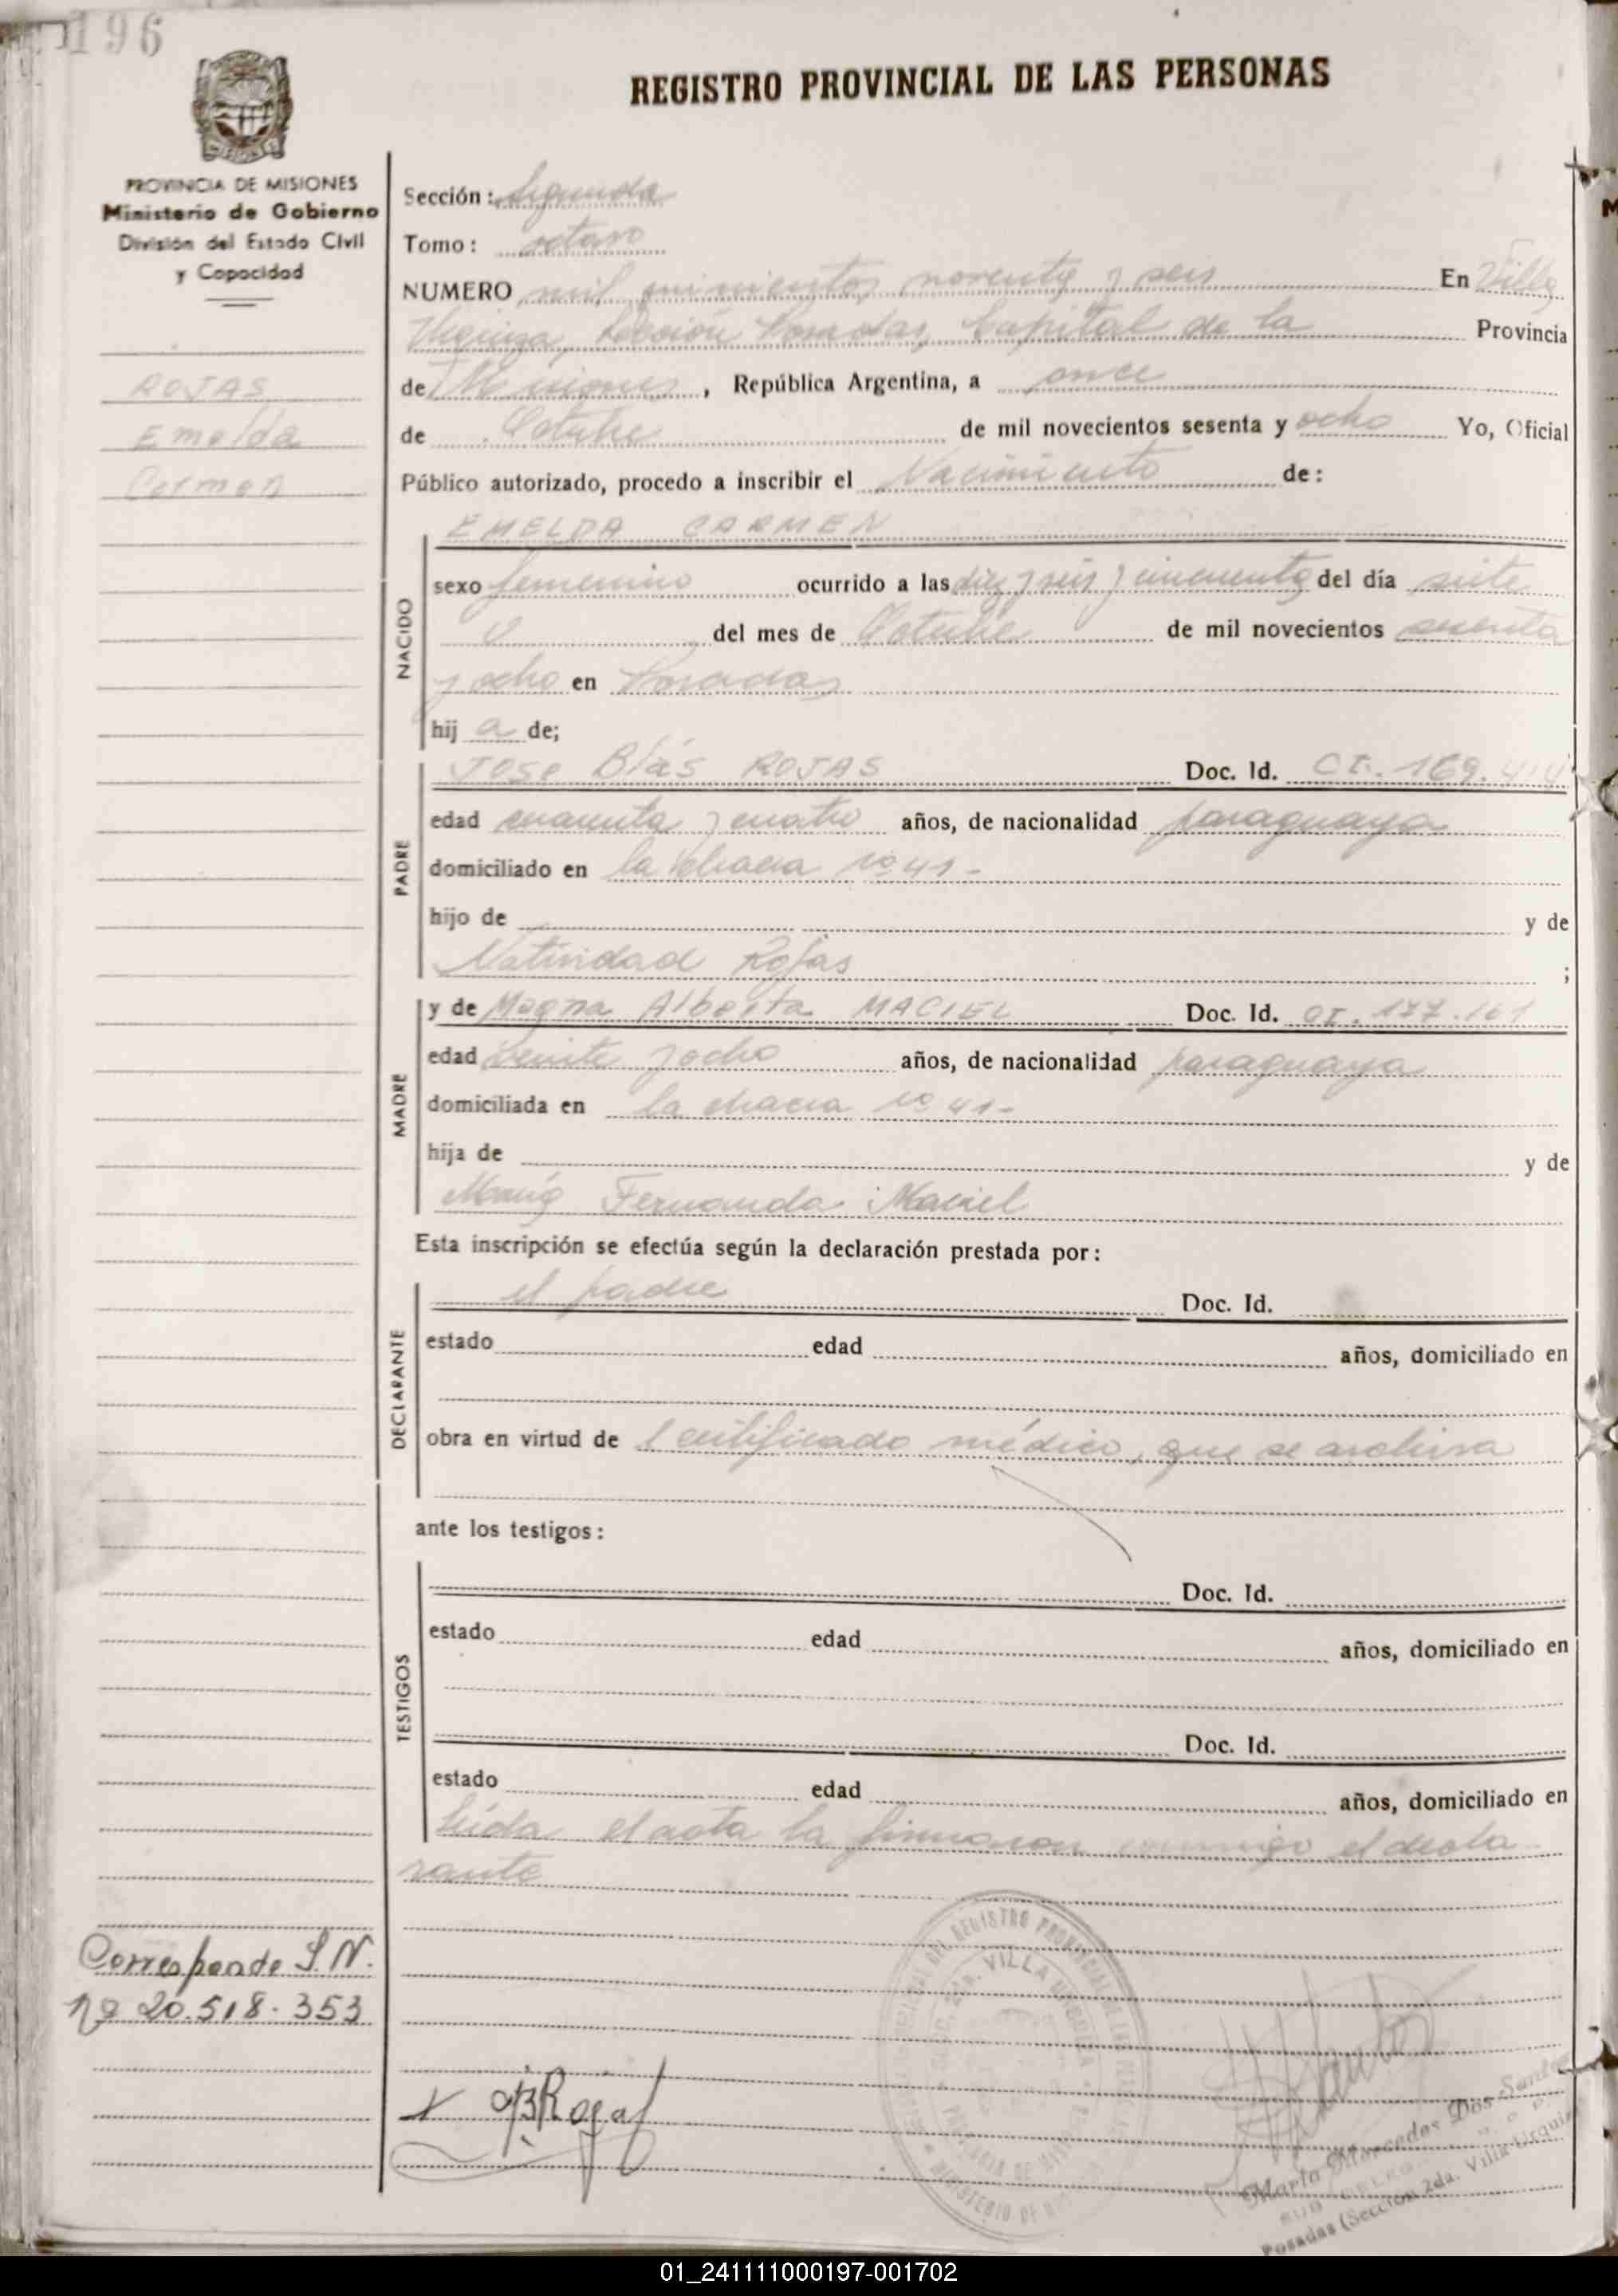 196
REGISTRO PROVINCIAL DE LAS PERSONAS
PROVINCIA DE MISIONES
Ministerio de Gobierno
División del Estado Civil
y Capacidad
ROJAS
Emelda
Carmen
Sección: Segunda
Tomo: octavo
NUMERO mil quinientos noventa y seis En Villa
Urquiza, Sección Posadas, Capital de la Provincia
de Misiones, República Argentina, a once
de Octubre de mil novecientos sesenta y ocho Yo, Oficial
Público autorizado, procedo a inscribir el Nacimiento de:
NACIDO
EMELDA CARMEN
sexo femenino ocurrido a las diez y seis y cincuenta del día siete
del mes de Octubre de mil novecientos sesenta
y ocho en Posadas
hij a de;
PADRE
JOSE Blás ROJAS Doc. Id. CI. 169.414
edad cuarenta y cuatro años, de nacionalidad paraguaya
domiciliado en la chacra nº 41-
hijo de y de
Natividad Rojas ;
MADRE
y de Magna Alberta MACIEL Doc. Id. CI. 177.161
edad veinte y ocho años, de nacionalidad paraguaya
domiciliada en la chacra nº 41-
hija de y de
María Fernanda Maciel
Esta inscripción se efectúa según la declaración prestada por:
DECLARANTE
el padre Doc. Id.
estado edad años, domiciliado en
obra en virtud de l certificado médico, que se archiva
ante los testigos:
TESTIGOS
Doc. Id.
estado edad años, domiciliado en
Doc. Id.
estado edad años, domiciliado en
Leída el acta la firmaron conmigo el decla
rante
Corresponde S.N.
nº 20.518.353
REGISTRO PROVINCIAL DE LAS
VILLA URQUIZA
MINISTERIO DE
x JBRojas
Marta Mercedes Dos Santos
Posadas (Sección 2da. Villa Urquiza
01_241111000197-001702